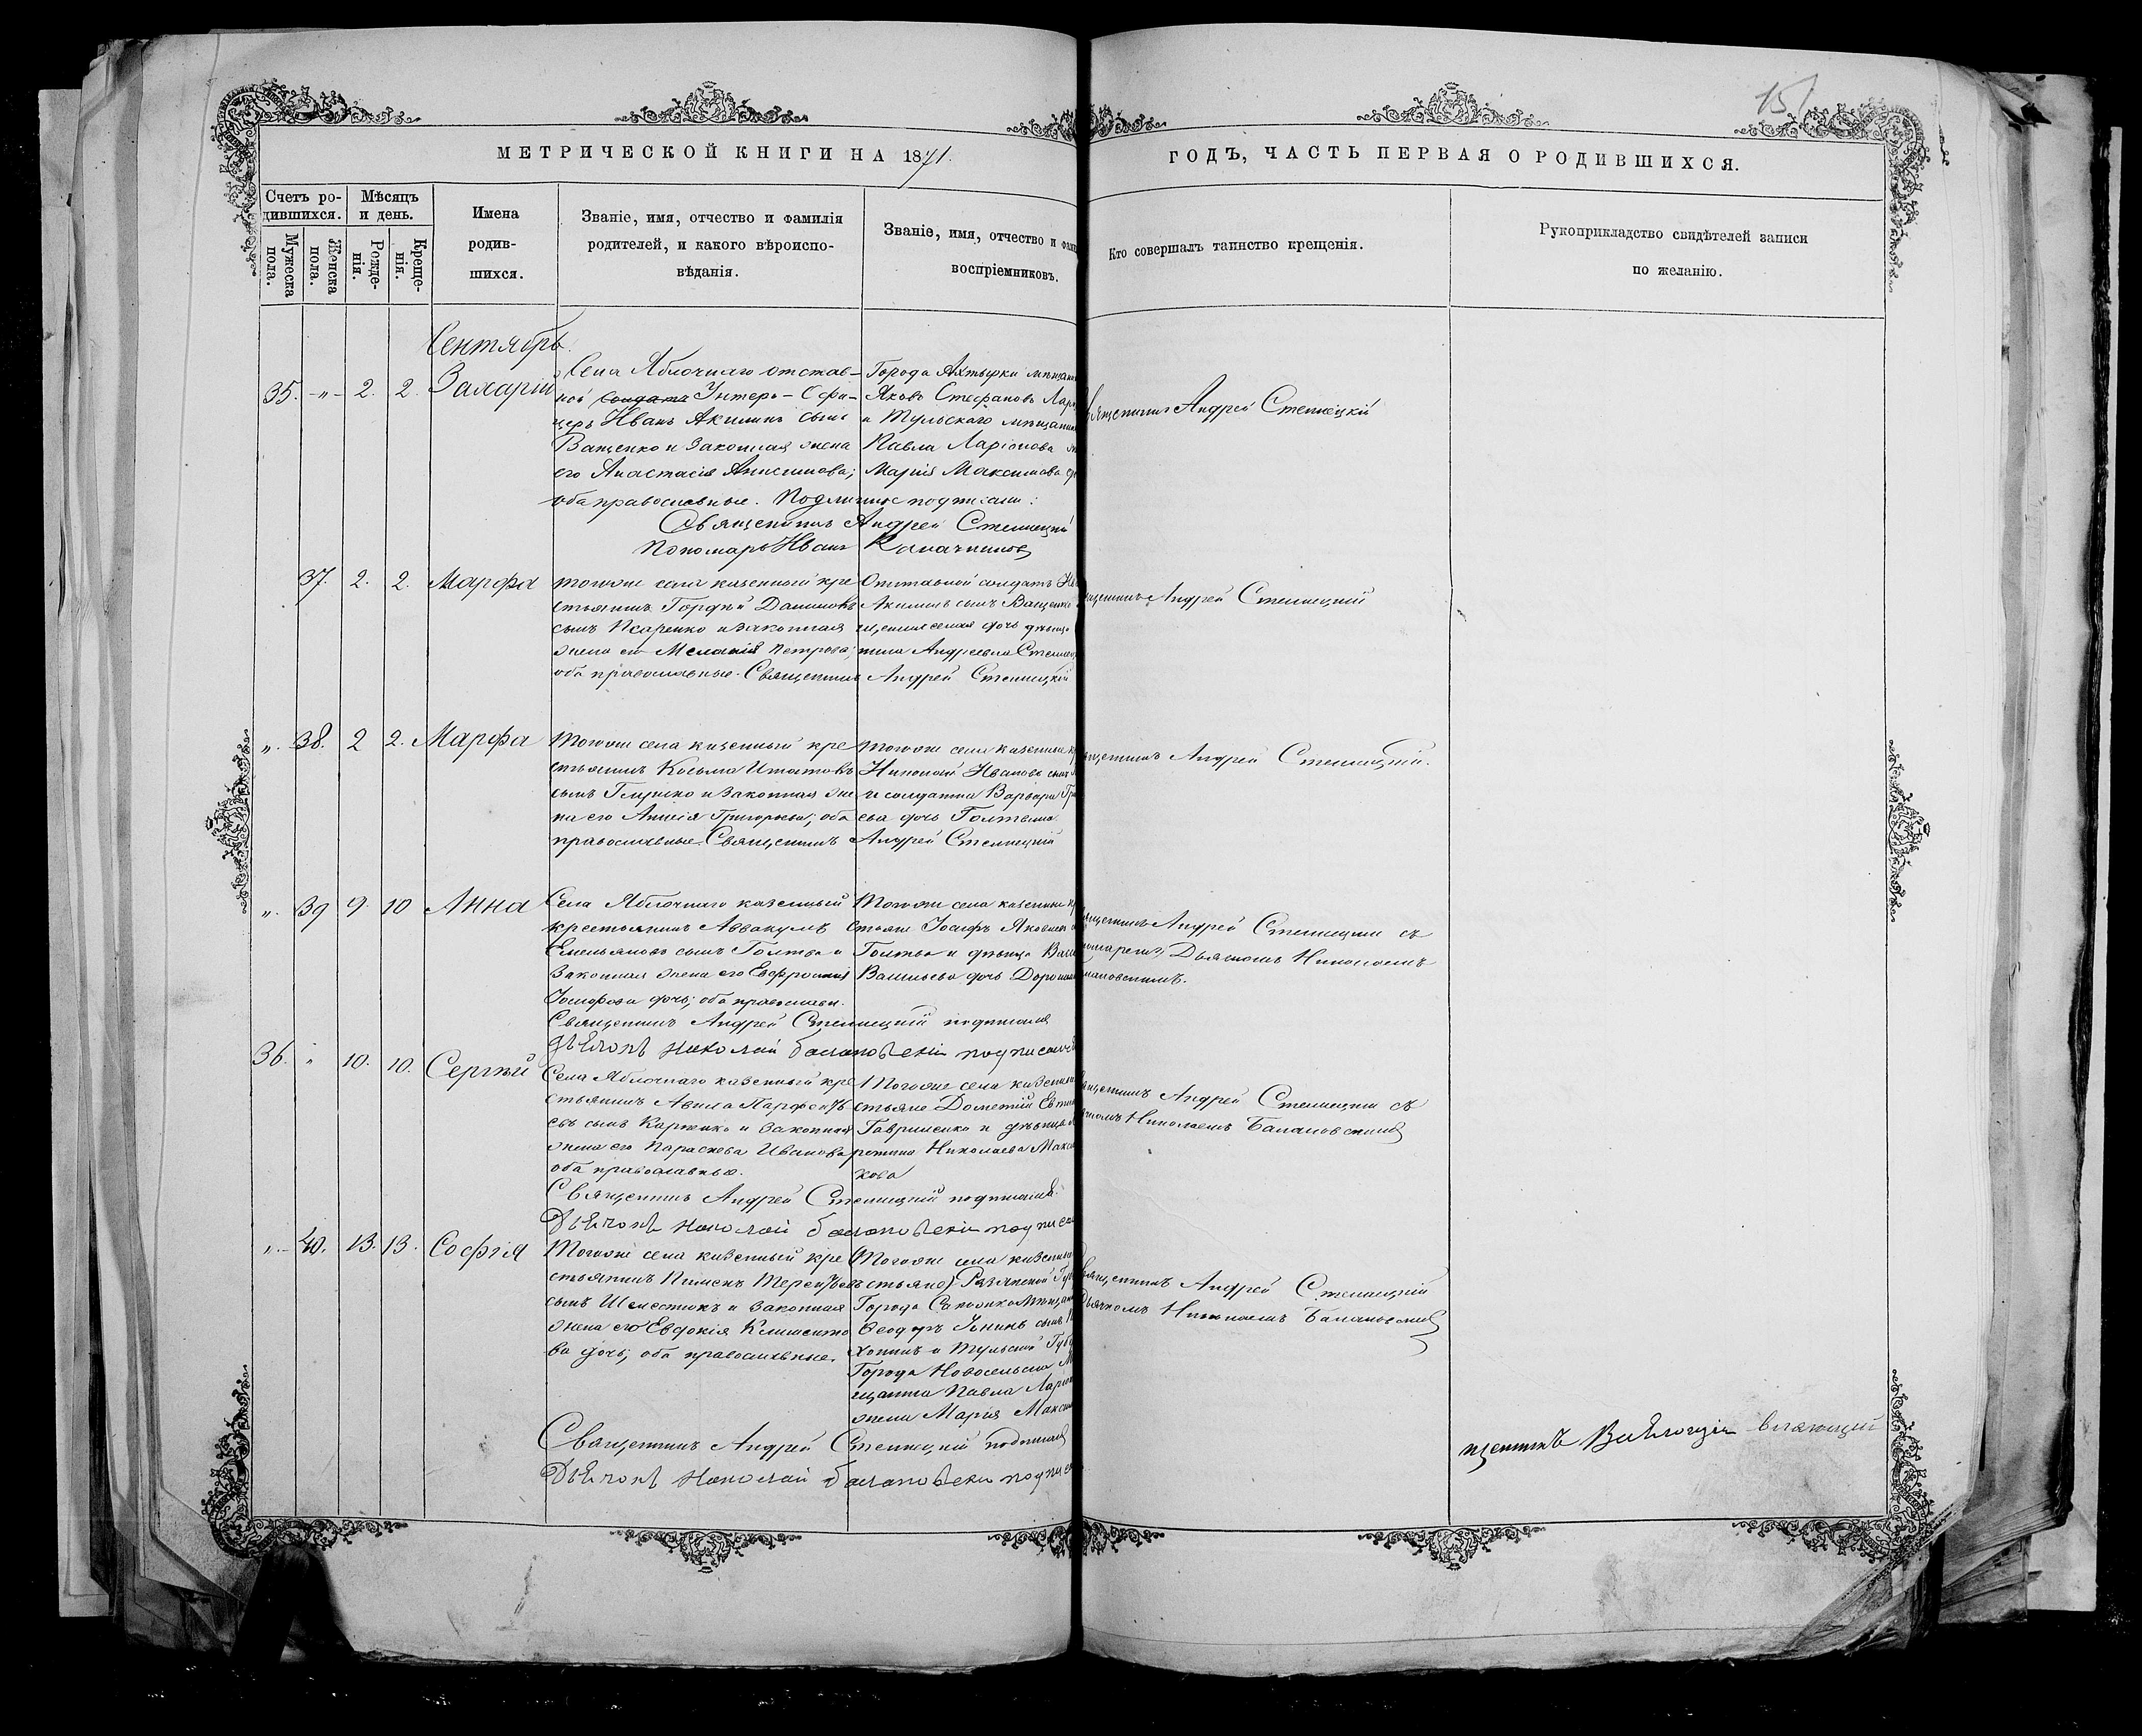 151
МЕТРИЧЕСКОЙ КНИГИ НА 1871.
ГОДЪ, ЧАСТЬ ПЕРВАЯ О РОДИВШИХСЯ.
Счетъ ро-
дившихся.
Мужеска
пола.
Женска
пола.
Мѣсяцъ
и день.
Рожде-
нія.
Креще-
нія.
Имена
родив-
шихся.
Званіе, имя, отчество и фамилія
родителей, и какого вѣроиспо-
вѣданія.
Званіе, имя, отчество и фами
воспріемниковъ.
Кто совершалъ таинство крещенія.
Рукоприкладство свидѣтелей записи
по желанію.
Сентябрь.
35. -„- 2. 2. Захарій
Села Яблочнаго отстав-
ной солдатъ Унтеръ-Офи-
церъ Иванъ Акиминъ сынъ
Ващенко и Законная жена
его Анастасія Анисимова;
оба православные. Подлинное подписали:
Священникъ Андрей Стеллецкій
Пономарь Иванъ
Города Ахтырки мѣщани
Яковъ Стефановъ Лар
и Тульскаго мѣщанин
Павла Ларіонова
Марія Максимова
Священникъ Андрей Стеллецкій
37. 2. 2. Марфа
Тогоже села казенный кре
стьянинъ Гордѣй Даниловъ
сынъ Псаренко и законная
жена его Меланія Петрова;
оба православные. Священникъ Андрей Стеллецкій
Отставной солдатъ Ив
Акиминъ сынъ Ващенко
и священническая дочь дѣвица
Андреевна Стеллец
щенникъ Андрей Стеллецкій
„. 38. 2 2. Марфа
Тогоже села казенный кре
стьянинъ Косьма Игнатовъ
сынъ и Законная же
на его Григорьева; оба
православные. Священникъ Андрей Стеллецкій
Тогоже села казенный кр
Николай Ивановъ сынъ
и солдатка Варвара Гри
ева дочь Голтвина
щенникъ Андрей Стеллецкій.
„. 39 9. 10 Анна
Села Яблочнаго казенный
крестьянинъ Аввакумъ
Емельяновъ сынъ Голтва и
Законная жена его Евфросинія
Іосифова дочь; оба православн.
Священникъ Андрей Стеллецкій подписалъ
Дьячокъ Николай Балановскій подписалъ
Тогоже села казенные кр
стьяне Іосифъ Яковлевъ
Голтва и дѣвица Васи
Васильева дочь Дорош
щенникъ Андрей Стеллецкій съ
номаремъ, Дьячкомъ Николаемъ
лановскимъ.
36. „ 10. 10. Сергѣй
Села Яблочнаго казенный кре
стьянинъ Авила Парфенть
евъ сынъ Коржико и Законная
жена его Параскева Иванова
оба православные.
Священникъ Андрей Стеллецкій подписалъ
Дьячокъ Николай Балановскій подписа
Тогоже села казенны
стьяне Дометій Евти
Гавриленко и дѣвица
Николаева Макси
кова
щенникъ Андрей Стеллецкій съ
ячкомъ Николаемъ Балановскимъ
„.- 40. 13. 13. Софія
Тогоже села казенный кре
стьянинъ Пименъ Терентьевъ
сынъ Шелестюкъ и Законная
жена его Евдокія Климентіо
ва дочь; оба православные.
Тогоже села казенны
стьяне) Рязанской Губ
Города Сапожка Мѣщан
Ѳеодоръ сынъ
и Тульской Губ
Города Новосельска М
щанина Павла Ларіо
жена Марія Макси
Священникъ Андрей Стеллецкій подписалъ
Дьячокъ Николай Балановскій подписа
вященникъ Андрей Стеллецкій
Дьячкомъ Николаемъ Балановскимъ
щенникъ